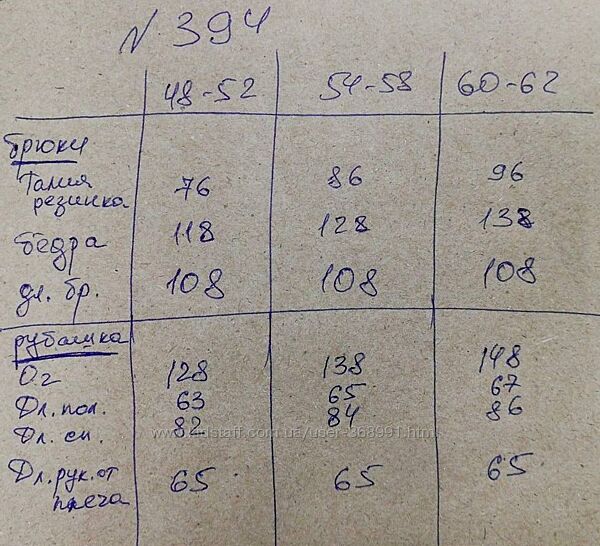 N 394
48-52 54-58 60-62
брюки
Талия резинка 76 86 96
бёдра 118 128 138
дл. бр. 108 108 108
рубашка
Ог 128 138 148
Дл. пол. 63 65 67
Дл. сп. 82 84 86
Дл. рук. от плеча 65 65 65
www.kidstaff.com.ua/user-368991.html